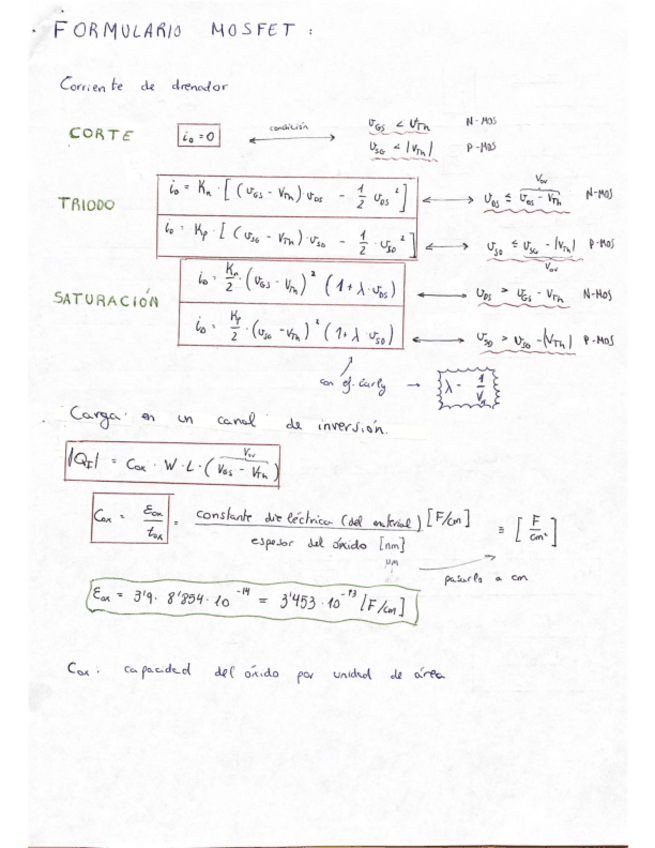 FORMULARIO MOSFET :
Corriente de drenador
CORTE i_D = 0 condición v_GS < v_Th N-MOS
v_SG < |v_Th| P-MOS
TRIODO i_D = K_n · [ (v_GS - V_Th) v_DS - 1/2 v_DS² ] v_DS ≤ v_GS - V_Th (V_ov) N-MOS
i_D = K_p · [ (v_SG - V_Th) · v_SD - 1/2 · v_SD² ] v_SD ≤ v_SG - |V_Th| (V_ov) P-MOS
SATURACIÓN i_D = K_n/2 · (v_GS - V_Th)² (1 + λ · v_DS) v_DS > v_GS - V_Th N-MOS
i_D = K_p/2 · (v_SG - V_Th)² (1 + λ v_SD) v_SD > v_SG - |V_Th| P-MOS
con ef. Early → λ = 1/V_A
Carga en un canal de inversión.
|Q_I| = Cox · W · L · (V_GS - V_Th) (V_ov)
Cox = εox/tox = constante dieléctrica (del material) [F/cm] / espesor del óxido [nm] ≡ [F/cm²]
μm
pasarlo a cm
εox = 3'9 · 8'854 · 10⁻¹⁴ = 3'453 · 10⁻¹³ [F/cm]
Cox : capacidad del óxido por unidad de área